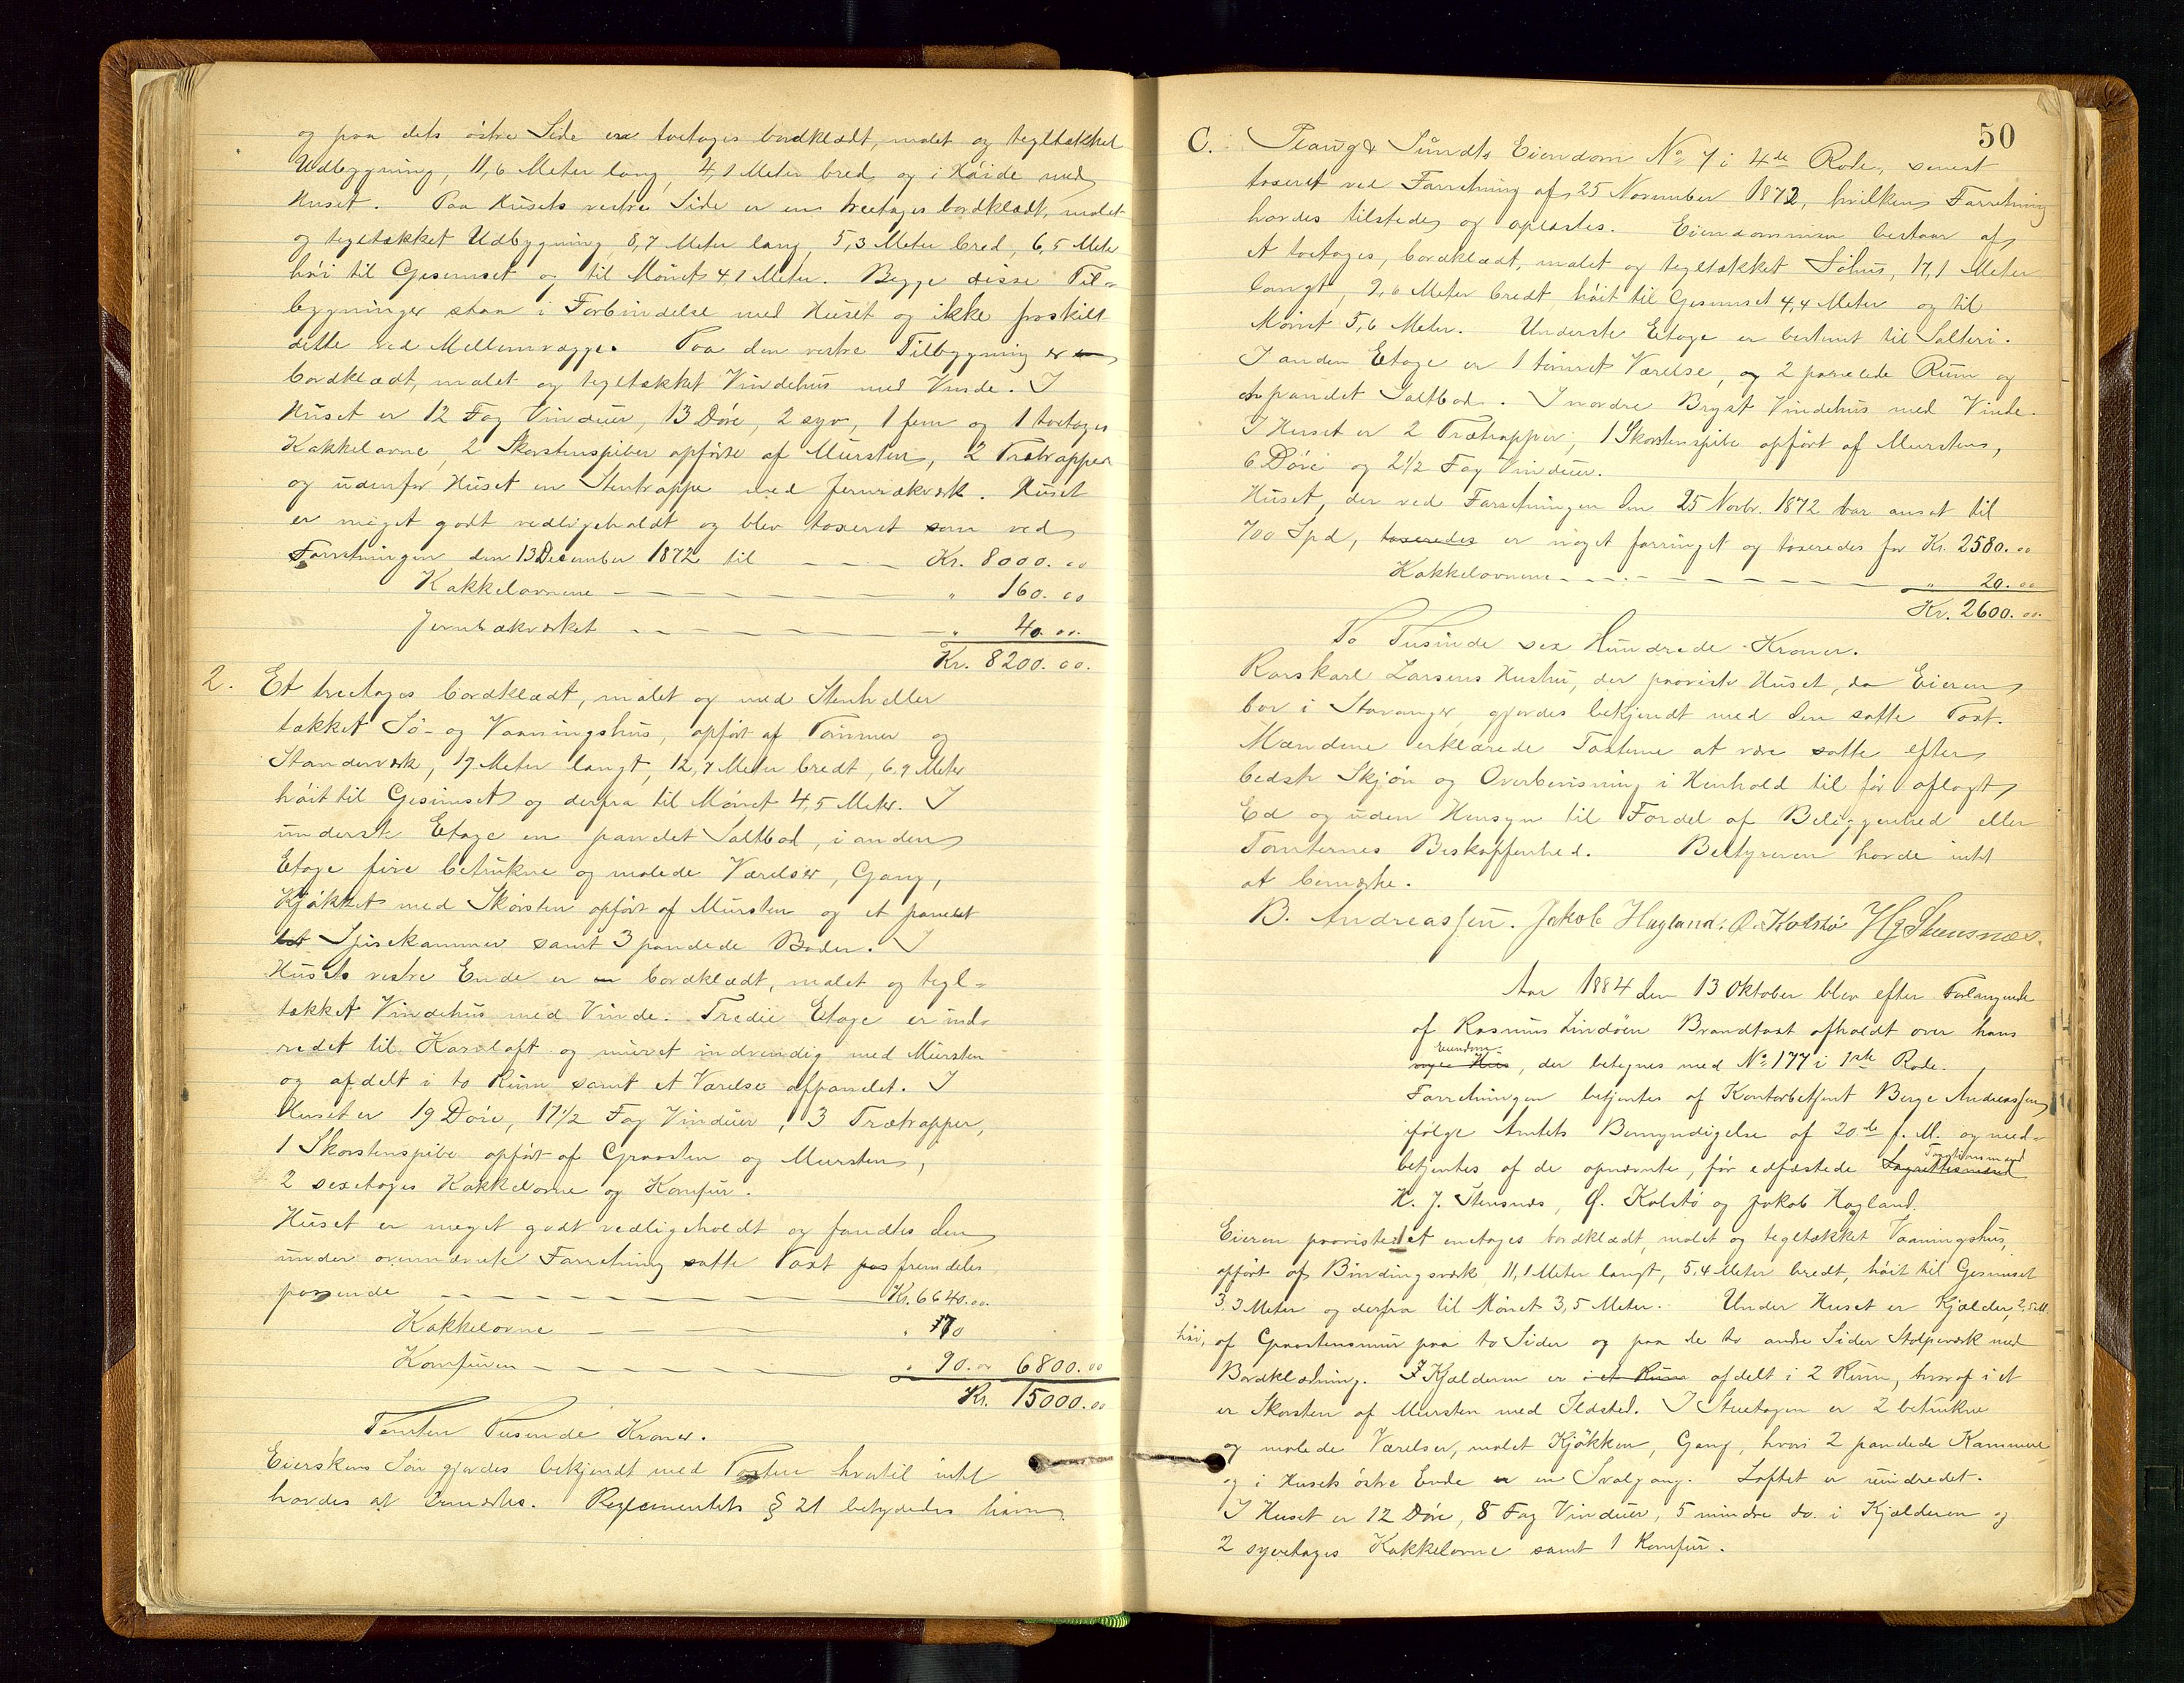 og paa dets östre Side en toetages bordklædt, malet og tegltækket
Udbygning, 11,6 Meter lang, 4,1 Meter bred, og i Höide med
Huset. Paa Husets vestre Side er en treetages bordklædt, malet
og tegltækket Udbygning, 8,7 Meter lang, 5,3 Meter bred, 6,5 Meter
höi til Gesimset og til Mönet 4,1 Meter. Begge disse Til-
bygninger staa i Forbindelse med Huset og ikke fraskilt
dette ved Mellemvægge. Paa den vestre Tilbygning er et
bordklædt, malet og tegltækket Vindehus med Vinde. I
Huset er 12 Fag Vinduer, 13 Döre, 2 syv, 1 fem og 1 toetages
Kakkelovne, 2 Skorstenspiber opförte af Mursten, 2 Trætrapper
og udenfor Huset en Stentrappe med Jernrækværk. Huset
er meget godt vedligeholdt og blev taxeret som ved
Forretningen den 13 December 1872 til Kr. 8000.00
Kakkelovnene " 160.00
Jernrækværket " 40.00.
Kr. 8200.00.
2. Et treetages bordklædt, malet og med Stenheller
tækket Sö- og Vaaningshus, opfört af Tömmer og
Standerværk, 19 Meter langt, 12,7 Meter bredt, 6,9 Meter
höit til Gesimset og derfra til Mönet 4,5 Meter. I
underste Etage en pandet Saltbod, i anden
Etage fire betrukne og malede Værelser, Gang,
Kjökket med Skorsten opfört af Mursten og et pandet
Spisekammer samt 3 pandede Boder. I
Husets vestre Ende er en bordklædt, malet og tegl-
tækket Vindehus med Vinde. Tredie Etage er ind-
redet til Kornloft og muret indvendig med Mursten
og afdelt i to Rum samt et Værelse afpandet. I
Huset er 19 Döre, 17 1/2 Fag Vinduer, 3 Trætrapper,
1 Skorstenspibe opfört af Graasten og Mursten,
2 sexetages Kakkelovne og Komfur.
Huset er meget godt vedligeholdt og fandtes den
under ovennævnte Forretning satte Taxt fremdeles
passende Kr. 6640.00.
Kakkelovne " 70
Komfuren " 90.00 6800.00
Kr. 15000.00
Femten Tusinde Kroner.
Eierskens Sön gjordes bekjendt med Taxten hvortil intet
havdes at bemærke. Reglementets § 21 betydedes ham.
50
C. Plaug & Sundts Eiendom No 7 i 4de Rode, senest
taxeret ved Forretning af 25 November 1872, hvilken Forretning
havdes tilstede og oplæstes. Eiendommen bestaar af
et toetages, bordklædt, malet og tegltækket Söhus, 17,1 Meter
langt, 9,6 Meter bredt, höit til Gesimset 4,4 Meter og til
Mönet 5,6 Meter. Underste Etage er bestemt til Salteri.
I anden Etage er 1 tömret Værelse, og 2 panelede Rum og
en pandet Saltbod. I nordre Bryst Vindehus med Vinde.
I Huset er 2 Trætrapper, 1 Skorstenspibe opfört af Mursten,
6 Döre og 2 1/2 Fag Vinduer.
Huset, der ved Forretningen den 25 Novbr. 1872 var ansat til
700 Spd, taxeredes er noget forringet og taxeredes for Kr. 2580.00
Kakkelovnene " 20.00
Kr. 2600.00.
To Tusinde sex Hundrede Kroner.
Karskarl Larsens Hustru, der paaviste Huset, da Eieren
bor i Stavanger, gjordes bekjendt med den satte Taxt.
Mændene erklærede Taxterne at være satte efter
bedste Skjön og Overbevisning i Henhold til för aflagt
Ed og uden Hensyn til Fordel af Beliggenhed eller
Tomternes Beskaffenhed. Bestyreren havde intet
at bemærke.
B. Andreassen. Jakob Hagland. O. Kolstö H J Stensnæs.
Aar 1884 den 13 Oktober blev efter Forlangende
af Rasmus Lindöen Brandtaxt afholdt over hans
Eiendom
nye Hus, der betegnes med No 177 i 1ste Rode.
Forretningen betjentes af Kontorbetjent Berge Andreassen
ifölge Amtets Bemyndigelse af 20de f. M. og med-
betjentes af de opnævnte, för edfæstede Lagrettesmænd Taxationsmænd
H. J. Stensnæs, O. Kolstö og Jakob Hagland.
Eieren paaviste 1 et enetages bordklædt, malet og tegltækket Vaaningshus,
opfört af Bindingsværk, 11,1 Meter langt, 5,4 Meter bredt, höit til Gesimset
3,3 Meter og derfra til Mönet 3,5 Meter. Under Huset er Kjælder, 2,5 M.
höi, af Graastensmur paa to Sider og paa de to andre Sider Stolpeværk med
Bordklædning. I Kjælderen er i et Rum afdelt i 2 Rum, hvoraf i et
er Skorsten af Mursten med Ildsted. I Stuetagen er 2 betrukne
og malede Værelser, malet Kjökken, Gang, hvori 2 pandede Kammere
og i Husets östre Ende er en Svalgang. Loftet er uindredet.
I Huset er 12 Döre, 8 Fag Vinduer, 5 mindre do. i Kjælderen og
2 syvetages Kakkelovne samt 1 Komfur.